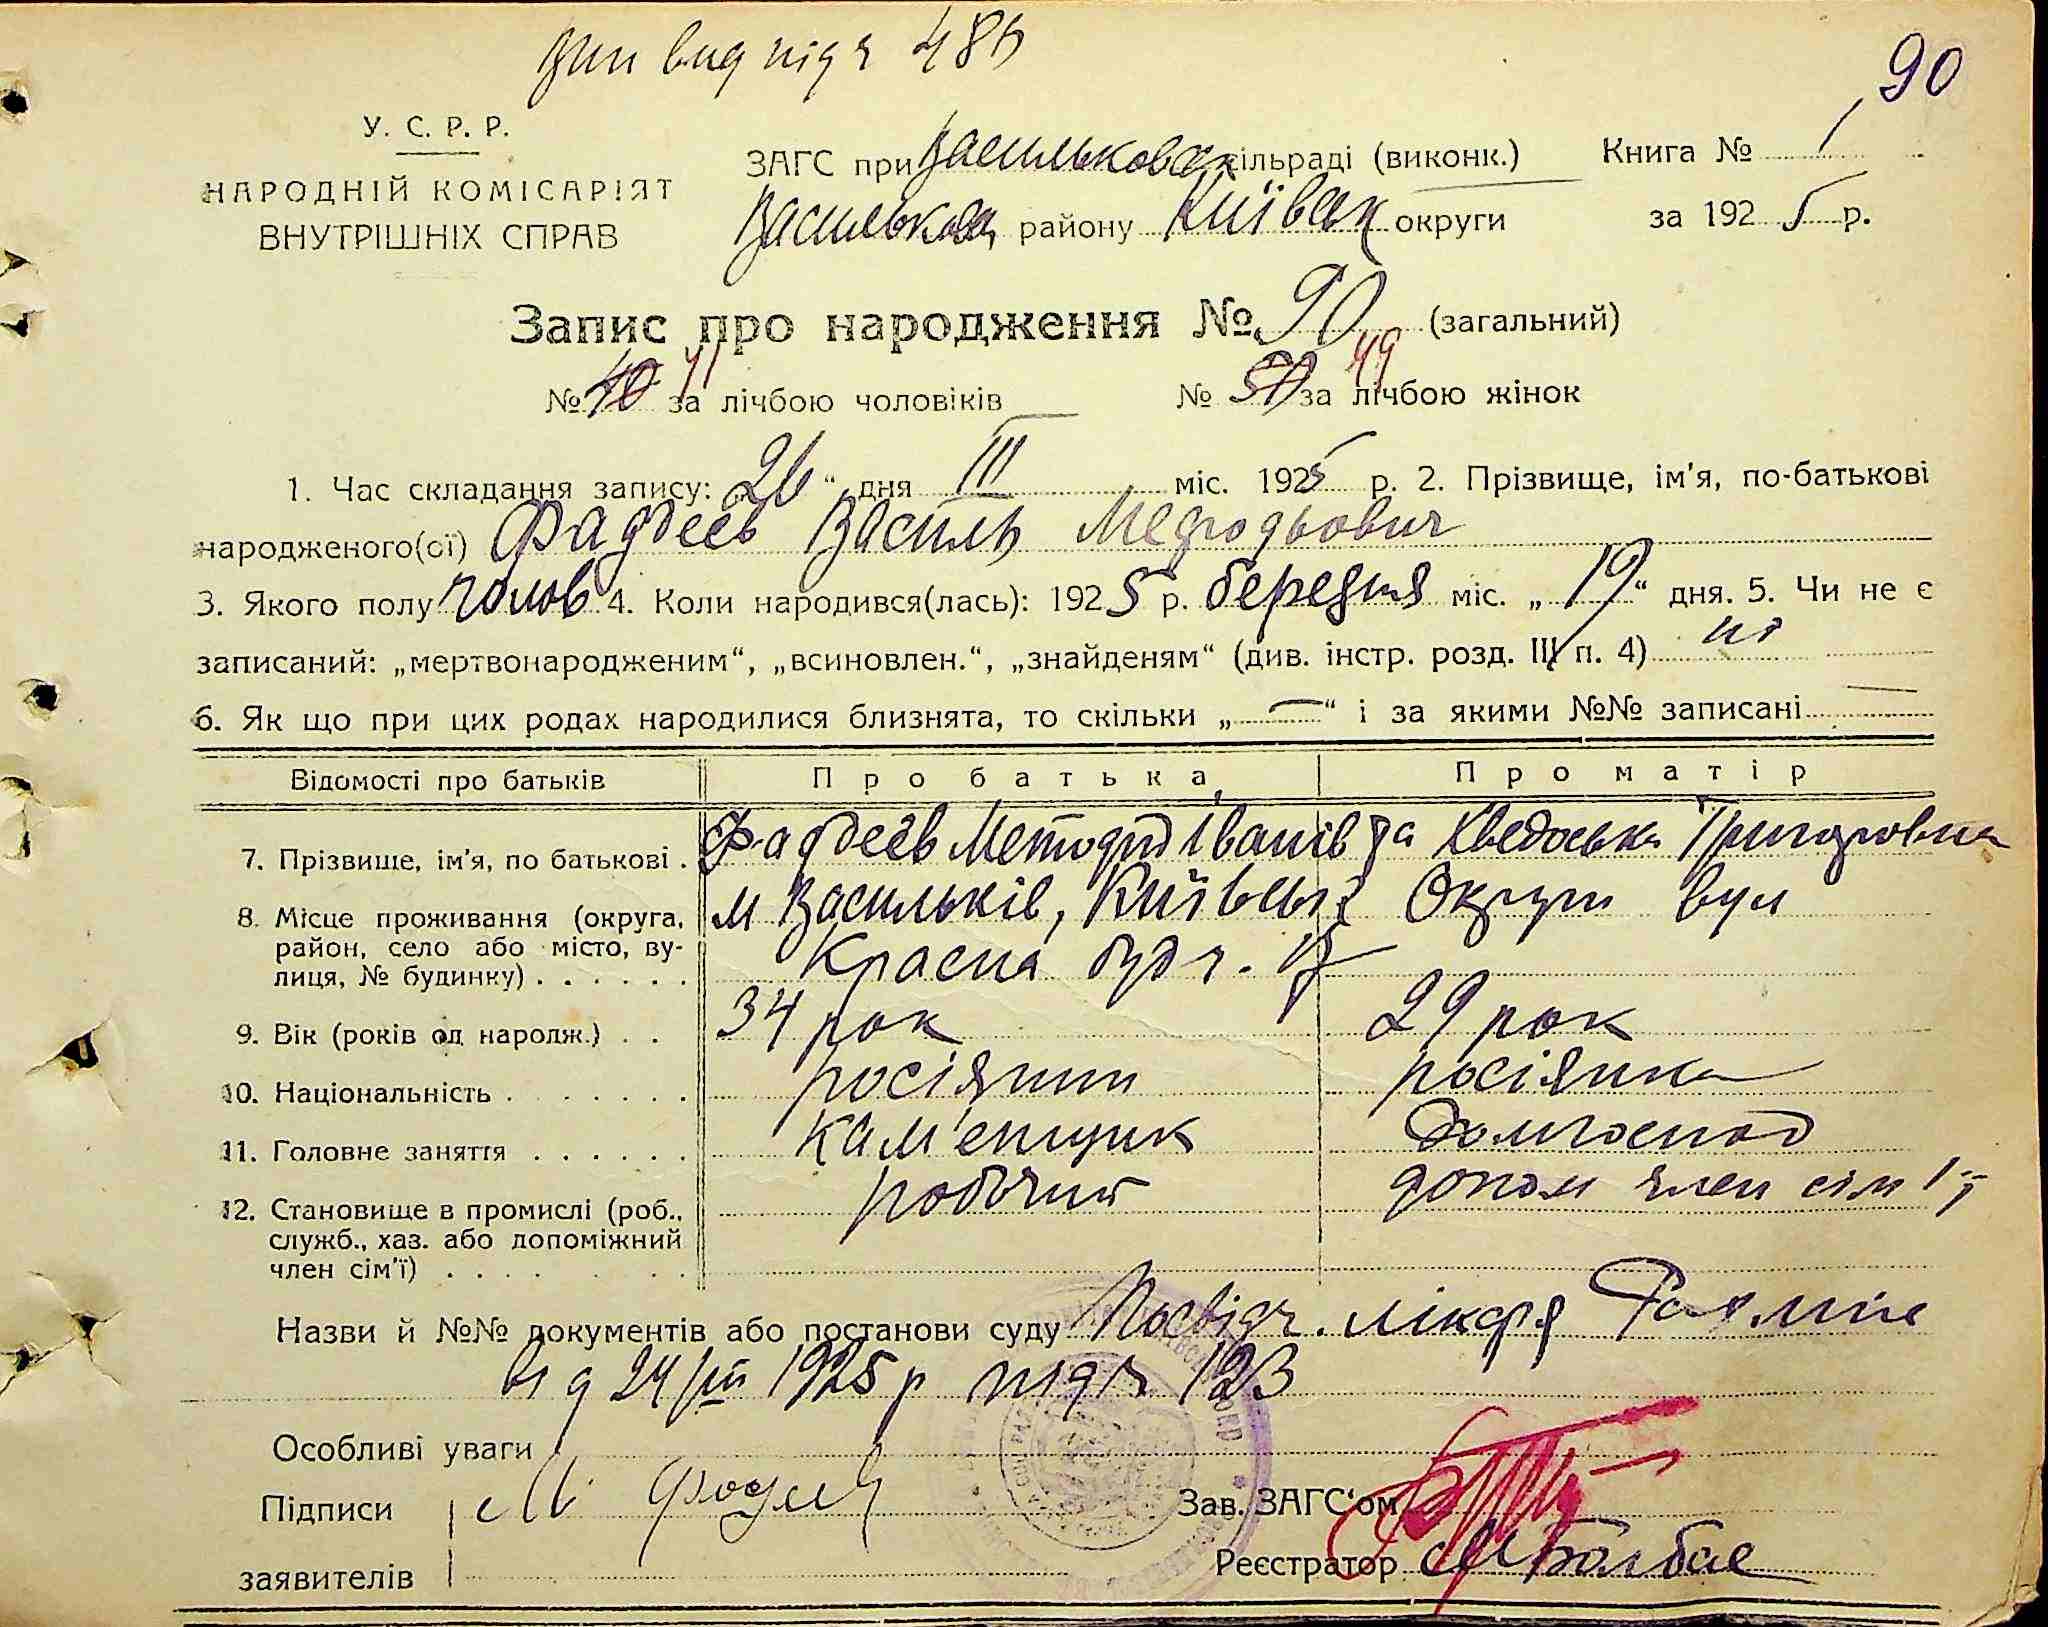 Вип вид під ч 486
90
У. С. Р. Р.
НАРОДНІЙ КОМІСАРІЯТ
ВНУТРІШНІХ СПРАВ
ЗАГС при Васильковск сільраді (виконк.) Книга № 1
Васильковск району Київськ округи за 1925 р.
Запис про народження № 90 (загальний)
№ 40 41 за лічбою чоловіків № 50 49 за лічбою жінок
1. Час складання запису: „26“ дня III міс. 1925 р. 2. Прізвище, ім'я, по-батькові
народженого(ої) Фаддеєв Василь Мефодьович
3. Якого полу чолов 4. Коли народився(лась): 1925 р. березня міс. „19“ дня. 5. Чи не є
записаний: „мертвонародженим“, „всиновлен.“, „знайденям“ (див. інстр. розд. III п. 4) ні
6. Як що при цих родах народилися близнята, то скільки „—“ і за якими №№ записані —
Відомості про батьків Про батька Про матір
7. Прізвище, ім'я, по батькові . Фаддеєв Методій Іванів та Хведоська Григоровна
8. Місце проживання (округа, м Васильків, Київської Округи вул
район, село або місто, ву- Красна буд ч.
лиця, № будинку) . . . . . .
9. Вік (років од народж.) . . 34 рок 29 рок
10. Національність . . . . . . . росіянин росіянка
11. Головне заняття . . . . . . кам'енщик домгоспод
12. Становище в промислі (роб., робочий допом член сім'ї
служб., хаз. або допоміжний
член сім'ї) . . . . . . . .
Назви й №№ документів або постанови суду Посвідч. лікаря
від 24/III 1925 р під ч 123
Особливі уваги
Підписи М Зав. ЗАГС'ом
заявителів Реєстратор